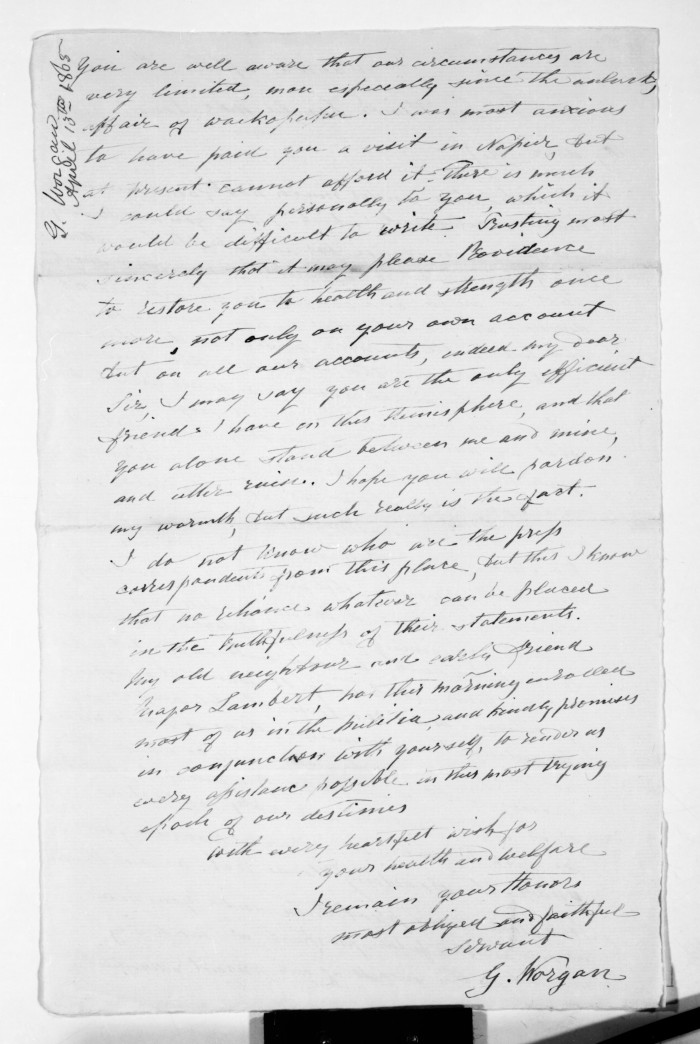 G. Worgan
April 13th 1865
You are well aware that our circumstances are
very limited, more especially since the unlucky
affair of
to have paid you a visit in Napier, but
at present cannot afford it. There is much
I could say personally to you, which it
would be difficult to write. Trusting most
sincerely that it may please Providence
to restore you to health and strength once
more, not only on your own account
but on all our accounts, indeed my dear
Sir, I may say you are the only efficient
friend I have in this Hemisphere, and that
you alone stand between me and mine,
and utter ruin. I hope you will pardon
my warmth, but such really is the fact.
I do not know who are the press
correspondents from this place, but this I know
that no reliance whatever can be placed
in the truthfulness of their statements.
My old neighbour and early friend
Major Lambert, has this morning enrolled
most of us in the Militia, and kindly promises
in conjunction with yourself, to render us
every assistance possible in this most trying
epoch of our destinies
With every heartfelt wish for
your health and welfare
I remain your Honors
most obliged and faithful
Servant
G. Worgan